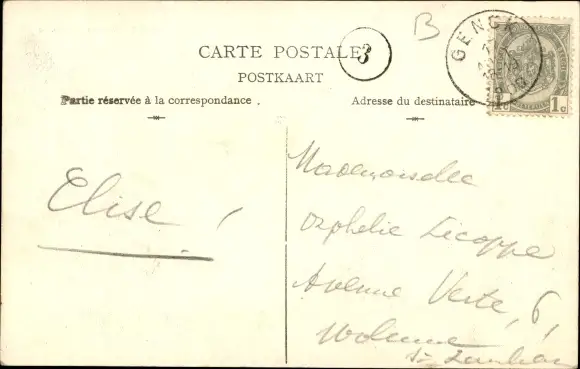 B
GENCK
CARTE POSTALE
3
POSTKAART
1c 1c
Partie réservée à la correspondance.
Adresse du destinataire
Elise !
Mademoiselle
Orphélie Licoppe
Avenue Verte, 6,
Woluwe
St Lambert